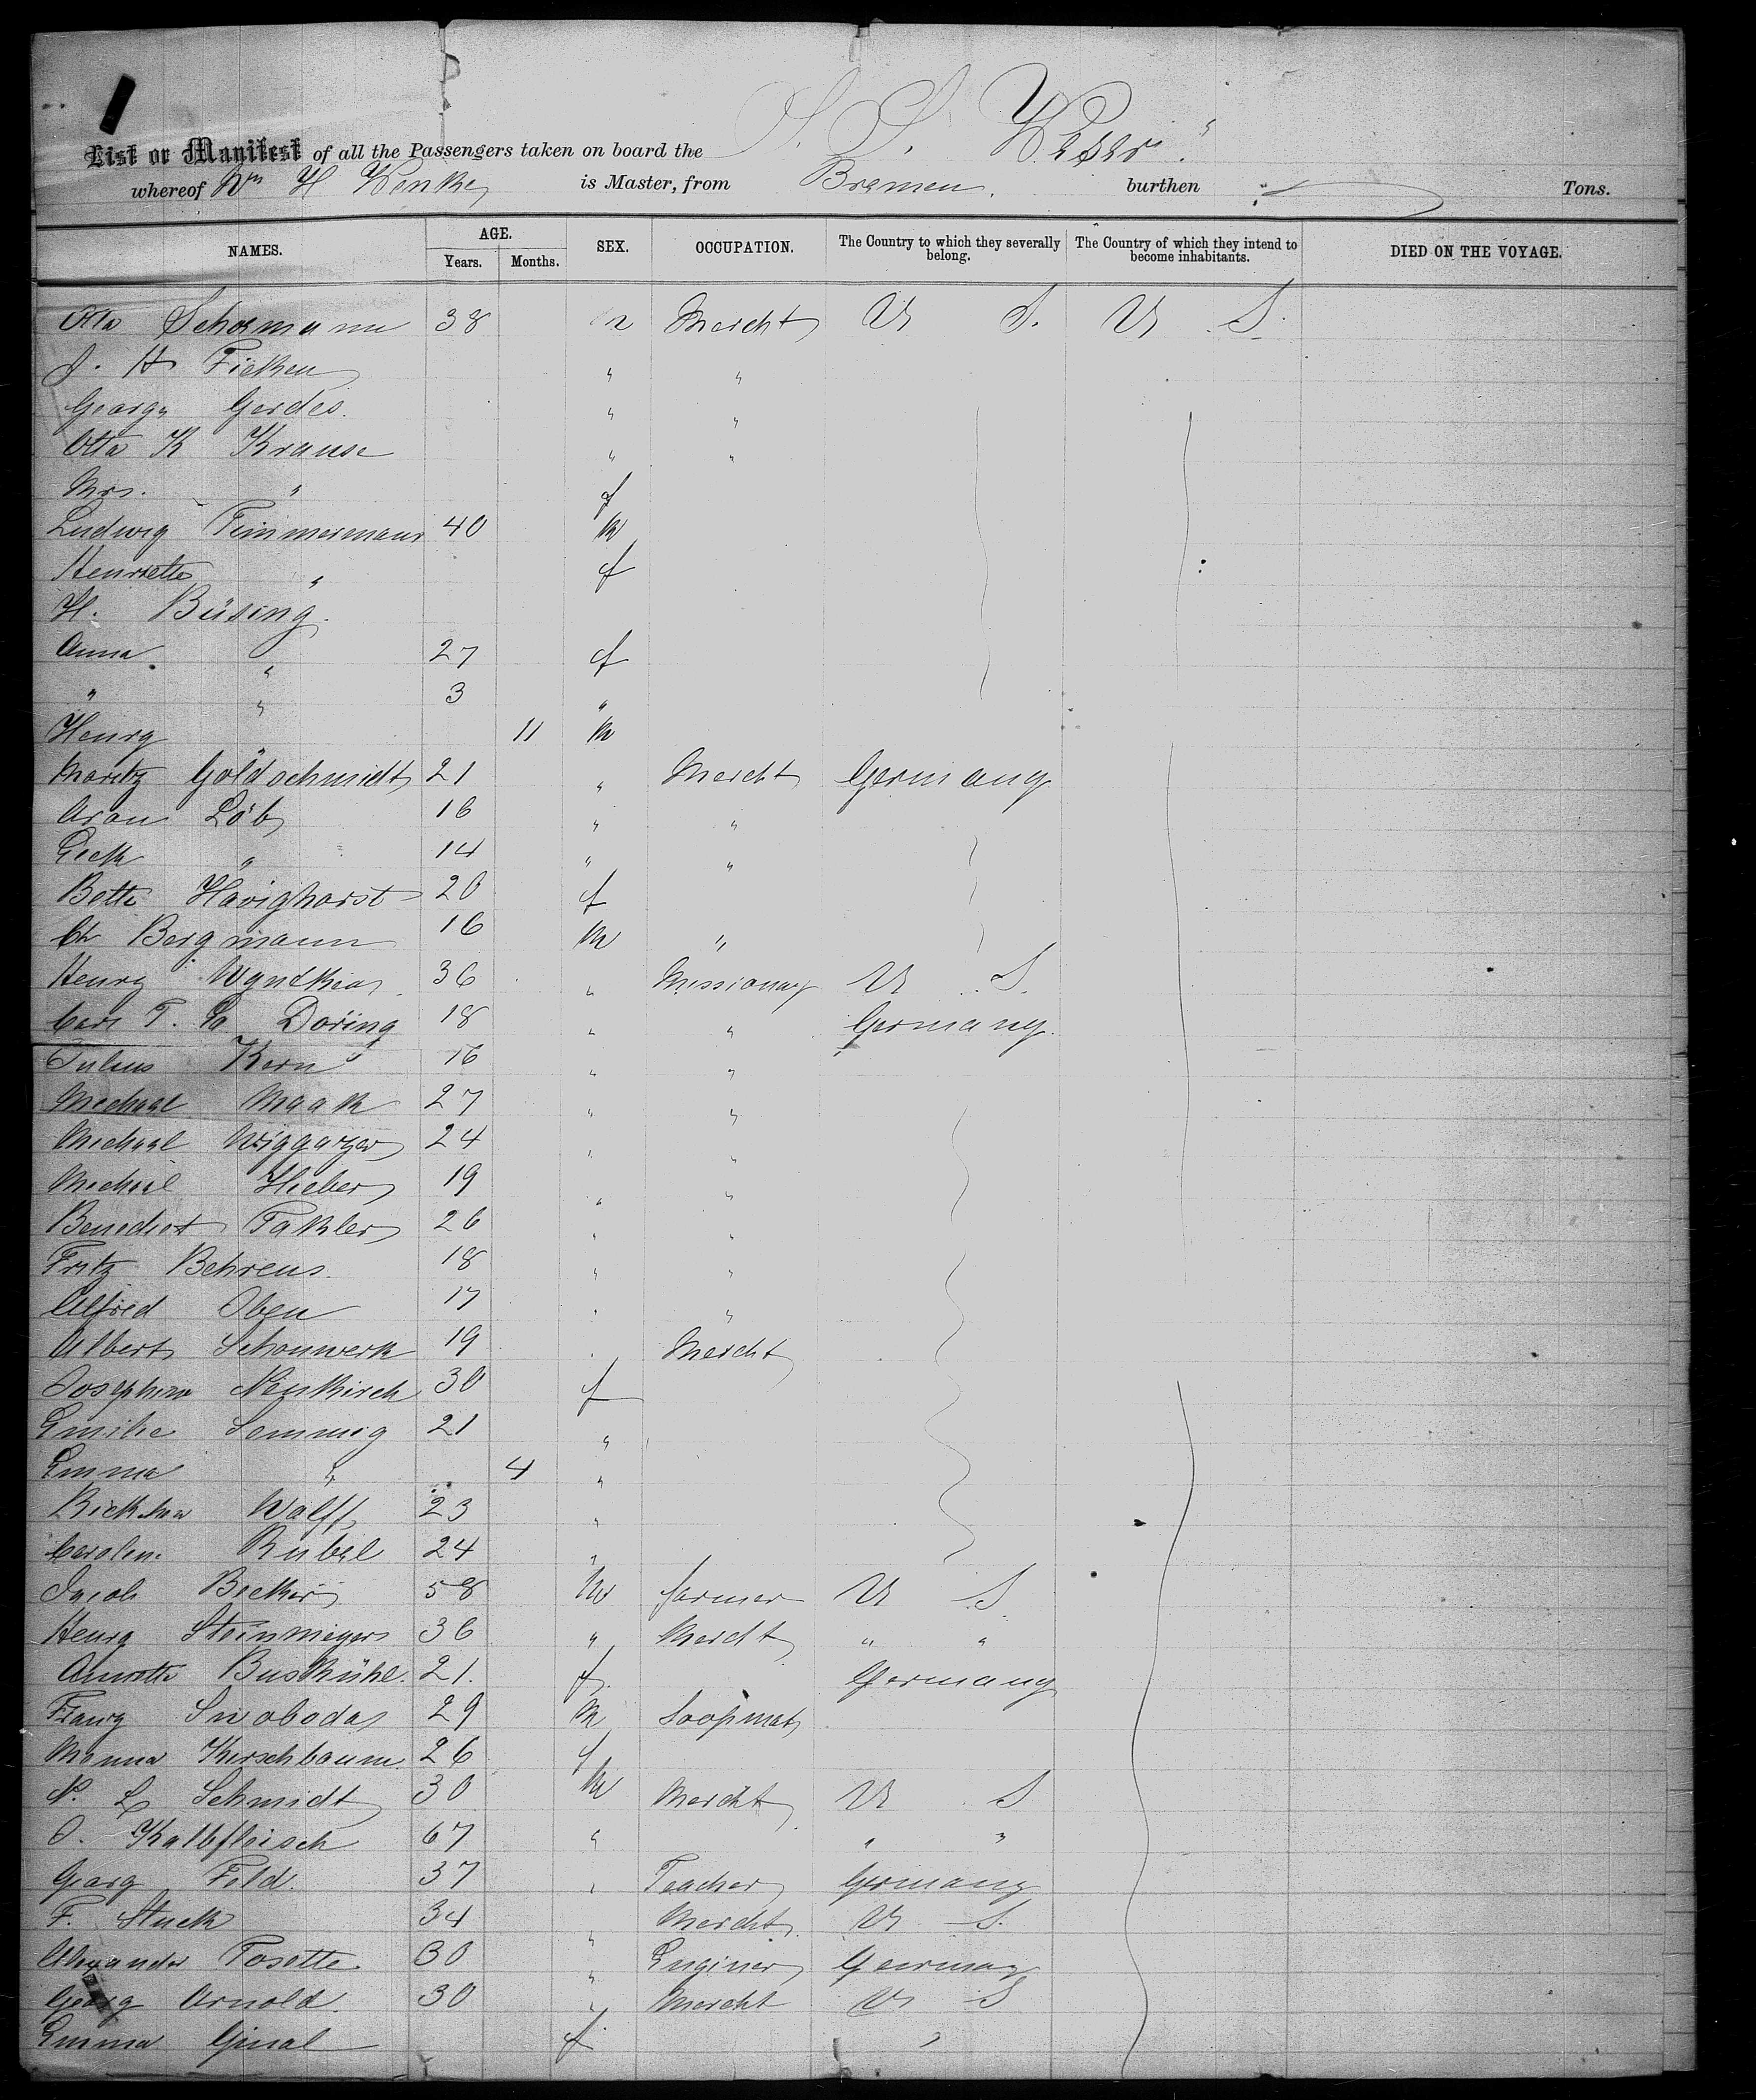 S. S. "Weser"
List or Manifest of all the Passengers taken on board the
whereof Wm H Wenke is Master, from Bremen. burthen Tons.
NAMES. AGE. Years. Months. SEX. OCCUPATION. The Country to which they severally belong. The Country of which they intend to become inhabitants. DIED ON THE VOYAGE.
Otto Schormann 38 m Mercht U S. U S.
J. H Ficken " "
Georg Gerdes. " "
Otto K Krause " "
Mrs. " f
Ludwig Timmermann 40 m
Henriette " f
H. Büsing.
Anna " 27 f
" " 3 "
Henry 11 m
Moritz Goldschmidt 21 " Mercht Germany
Aron Löb 16 " "
" 14 " "
Bette Havighorst 20 f
Ch Bergmann 16 m "
Henry 36 " Missionary U S.
Carl T. Doring 18 " " Germany.
Julius Kern 16 " "
Michael Maak 27 " "
Michael 24 " "
Michael Hieber 19 " "
Benedict Takler 26 " "
Fritz Behrens. 18 " "
Alfred Oben 17 " "
Albert Schonwerk 19 " Mercht
Josephine Neukirch 30 f
Emilie Semmig 21 "
Emma " 4 "
Wolff 23 "
Carolin Rubel 24 "
Jacob Becker 58 m farmer U S.
Henry Steinmeyer 36 " Mercht " "
Annette Buskühl. 21. f. Germany
Franz Swoboda 29 m
Minna Kerschbaum. 26 f
N. L Schmidt 30 m Mercht U S
J. Kalbfleisch 67 " " "
Georg Feld. 37 " Teacher Germany
F. Stuck 34 " Mercht U S.
Alexander Posette 30 " Enginer Germany
Georg Arnold. 30 " Mercht U S
Emma Ginal f "